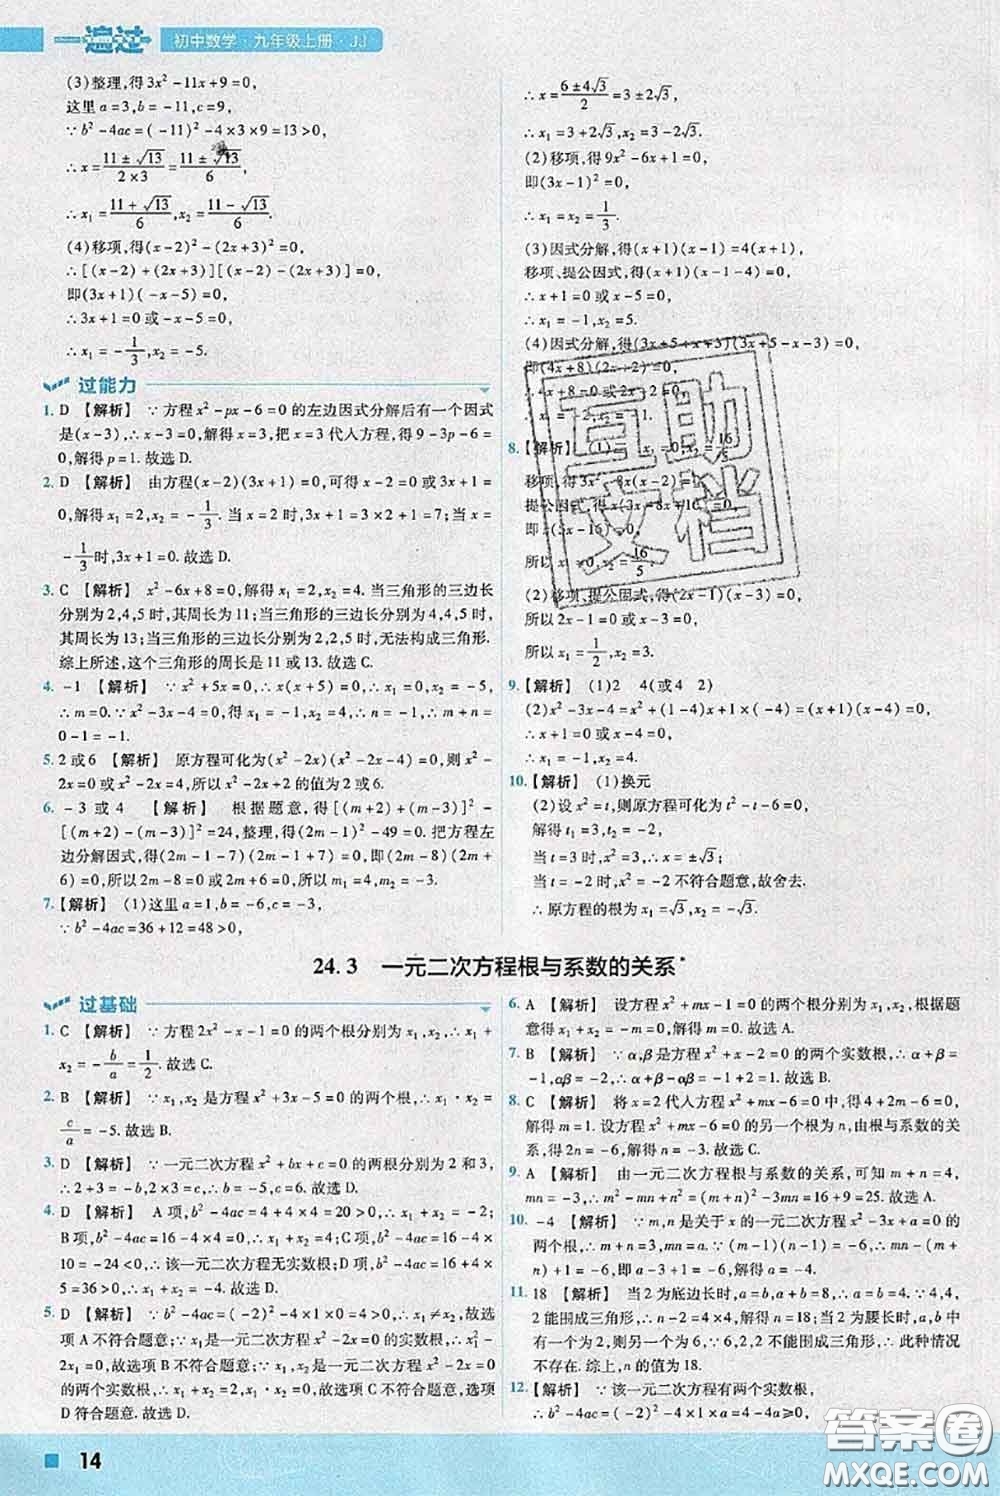 一遍过 初中数学·九年级上册·JJ
(3)整理,得3x²-11x+9=0,
这里a=3,b=-11,c=9,
∵b²-4ac=(-11)²-4×3×9=13>0,
∴x=(11±√13)/(2×3)=(11±√13)/6,
∴x₁=(11+√13)/6,x₂=(11-√13)/6.
(4)移项,得(x-2)²-(2x+3)²=0,
∴[(x-2)+(2x+3)][(x-2)-(2x+3)]=0,
即(3x+1)(-x-5)=0,
∴3x+1=0或-x-5=0,
∴x₁=-1/3,x₂=-5.
过能力
1. D 【解析】 ∵方程x²-px-6=0的左边因式分解后有一个因式
是(x-3),∴x-3=0,解得x=3,把x=3代入方程,得9-3p-6=
0,解得p=1.故选D.
2. D 【解析】 由方程(x-2)(3x+1)=0,可得x-2=0或3x+1=
0,解得x₁=2,x₂=-1/3.当x=2时,3x+1=3×2+1=7;当x=
-1/3时,3x+1=0.故选D.
3. C 【解析】 x²-6x+8=0,解得x₁=2,x₂=4.当三角形的三边长
分别为2,4,5时,其周长为11;当三角形的三边长分别为4,4,5时,
其周长为13;当三角形的三边长分别为2,2,5时,无法构成三角形.
综上所述,这个三角形的周长是11或13.故选C.
4. -1 【解析】 ∵x²+5x=0,∴x(x+5)=0,∴x₁=0,x₂=-5,
∴m=0.∵x²-3x-4=0,得x₁=-1,x₂=4,∴n=-1,∴m+n=
0-1=-1.
5. 2或6 【解析】 原方程可化为(x²-2x)(x²-2x-4)=0,则x²-
2x=0或x²-2x=4,所以x²-2x+2的值为2或6.
6. -3或4 【解析】 根据题意,得[(m+2)+(m-3)]²-
[(m+2)-(m-3)]²=24,整理,得(2m-1)²-49=0.把方程左
边分解因式,得(2m-1-7)(2m-1+7)=0,即(2m-8)(2m+
6)=0,所以2m-8=0或2m+6=0,所以m₁=4,m₂=-3.
7.【解析】 (1)这里a=1,b=-6,c=-3,
∵b²-4ac=36+12=48>0,
∴x=(6±4√3)/2=3±2√3,
∴x₁=3+2√3,x₂=3-2√3.
(2)移项,得9x²-6x+1=0,
即(3x-1)²=0,
∴x₁=x₂=1/3.
(3)因式分解,得(x+1)(x-1)=4(x+1),
移项、提公因式,得(x+1)(x-1-4)=0,
∴x+1=0或x-5=0,
∴x₁=-1,x₂=5.
(4)因式分解,得(3x+5+x+3)(3x+5-x-3)=0,
即(4x+8)(2x+2)=0,
∴4x+8=0或2x+2=0,
∴x₁=-2,x₂=-1.
8.【解析】 (1) x₁=0,x₂=16/5
移项,得3x²-8x(x-2)=0,
提公因式,得x(3x-8x+16)=0,
即x(5x-16)=0,
所以x₁=0,x₂=16/5.
(2)移项、提公因式,得(2x-1)(x-3)=0,
所以2x-1=0或x-3=0,
所以x₁=1/2,x₂=3.
9.【解析】 (1)2 4(或4 2)
(2)x²-3x-4=x²+(1-4)x+1×(-4)=(x+1)(x-4)=0,
∴x+1=0或x-4=0,
∴x₁=-1,x₂=4.
10.【解析】 (1)换元
(2)设x²=t,则原方程可化为t²-t-6=0,
解得t₁=3,t₂=-2,
当t=3时,x²=3,∴x=±√3;
当t=-2时,x²=-2不符合题意,故舍去.
∴原方程的根为x₁=√3,x₂=-√3.
24.3 一元二次方程根与系数的关系*
过基础
1. C 【解析】 ∵方程2x²-x-1=0的两个根分别为x₁,x₂,∴x₁+
x₂=-b/a=1/2.故选C.
2. B 【解析】 ∵x₁,x₂是方程x²+3x-5=0的两个根,∴x₁·x₂=
c/a=-5.故选B.
3. D 【解析】 ∵一元二次方程x²+bx+c=0的两根分别为2和3,
∴2+3=-b,2×3=c,∴b=-5,c=6.故选D.
4. D 【解析】 A项,b²-4ac=4+4×4=20>0,∴x₁+x₂=-2;
B项,b²-4ac=16-4×4=0,∴x₁+x₂=4;C项,b²-4ac=16-4×
10=-24<0,∴该一元二次方程无实数根;D项,b²-4ac=16+4×
5=36>0,∴x₁+x₂=4.故选D.
5. D 【解析】 ∵b²-4ac=(-2)²-4×1×0=4>0,∴x₁≠x₂,故选
项A不符合题意;∵x₁是一元二次方程x²-2x=0的实数根,∴x₁²-
2x₁=0,故选项B不符合题意;∵x₁,x₂是一元二次方程x²-2x=0
的两个实数根,∴x₁+x₂=2,x₁·x₂=0,故选项C不符合题意,选项
D符合题意.故选D.
6. A 【解析】 设方程x²+mx-1=0的两个根分别为x₁,x₂,根据题
意得x₁+x₂=-m=0,解得m=0.故选A.
7. B 【解析】 ∵α,β是方程x²+x-2=0的两个实数根,∴α+β=
-1,αβ=-2,∴α+β-αβ=-1+2=1.故选B.
8. C 【解析】 将x=2代入方程x²+mx-6=0中,得4+2m-6=0,
解得m=1.设方程x²+x-6=0的另一个根为n,由根与系数的关
系,得2n=-6,解得n=-3.故选C.
9. A 【解析】 由一元二次方程根与系数的关系,可知m+n=4,
mn=-3,∴m²-mn+n²=(m+n)²-3mn=16+9=25.故选A.
10. -4 【解析】 ∵m,n是关于x的一元二次方程x²-3x+a=0的
两个根,∴m+n=3,mn=a.∵(m-1)(n-1)=-6,∴mn-(m+
n)+1=-6,即a-3+1=-6,解得a=-4.
11. 18 【解析】 当2为底边长时,a=b,a+b=8,∴a=b=4.∵4,4,
2能围成三角形,∴n-2=4×4,解得n=18;当2为腰长时,a,b中有
一个为2,则另一个为6,∵6,2,2不能围成三角形,∴此种情况
不存在.综上,n的值为18.
12.【解析】 ∵该一元二次方程有两个实数根,
∴b²-4ac=(-2)²-4×1×a=4-4a≥0,
互助文档
14
答案圈
MXQE.COM